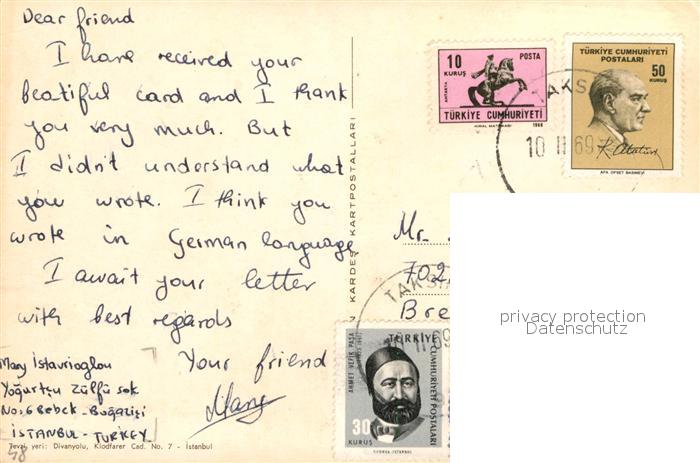 Dear friend
I have received your
beatiful card and I thank
you very much. But
I didn't understand what
you wrote. I think you
wrote in German language
I await your letter
with best regards
Your friend
Mary
Mary İstavrioglou
Yoğurtçu Zülfü sok
No: 6 Bebek - Boğaziçi
İSTANBUL - TURKEY
48
yeri: Divanyolu, Klodfarer Cad. No. 7 - İstanbul
KARDEŞ KARTPOSTALLARI
10
KURUŞ
POSTA
ANTAKYA
TÜRKİYE CUMHURİYETİ
1968
TÜRKİYE CUMHURİYETİ
POSTALARI
50
KURUŞ
K. Atatürk
APA OFSET BASIMEVİ
TAKS
10 II 69
Mr.
702
Bre
TAKSİ
69
AHMET VEFİK PAŞA
TÜRKİYE
CUMHURİYETİ POSTALARI
30
KURUŞ
privacy protection
Datenschutz